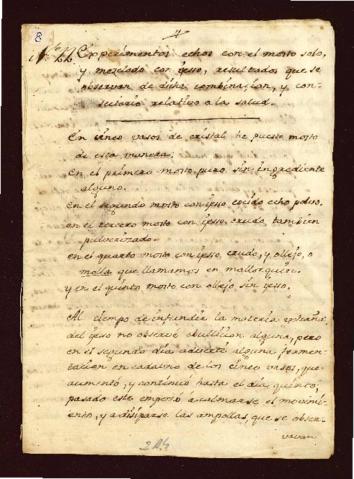 8
4
Nº 22. Experimentos echos con el mosto solo,
y mezclado con yesso, resultados que se
observan de dicha combinacion, y con-
sectario relativo a la salud.
En cinco vasos de cristal he puesto mosto
de esta manera:
En el primero mosto puro sin ingrediente
alguno.
En el segundo mosto con yesso cocido echo polvo.
en el tercero mosto con yesso crudo tambien
pulverizado.
en el quarto mosto con yesso crudo, y ollejo, o
molla que llamamos en mallorquin.
y en el quinto mosto con ollejo sin yesso.
Al tiempo de infundir la materia estraña
del yeso no observé ebullicion alguna, pero
en el segundo dia advertí alguna fermen-
tacion en cada uno de los cinco vasos, que
aumentó, y continuó hasta el dia quinto;
pasado este empezó a calmarse el movimi-
ento, y a disiparse las ampollas, que se obser-
vavan